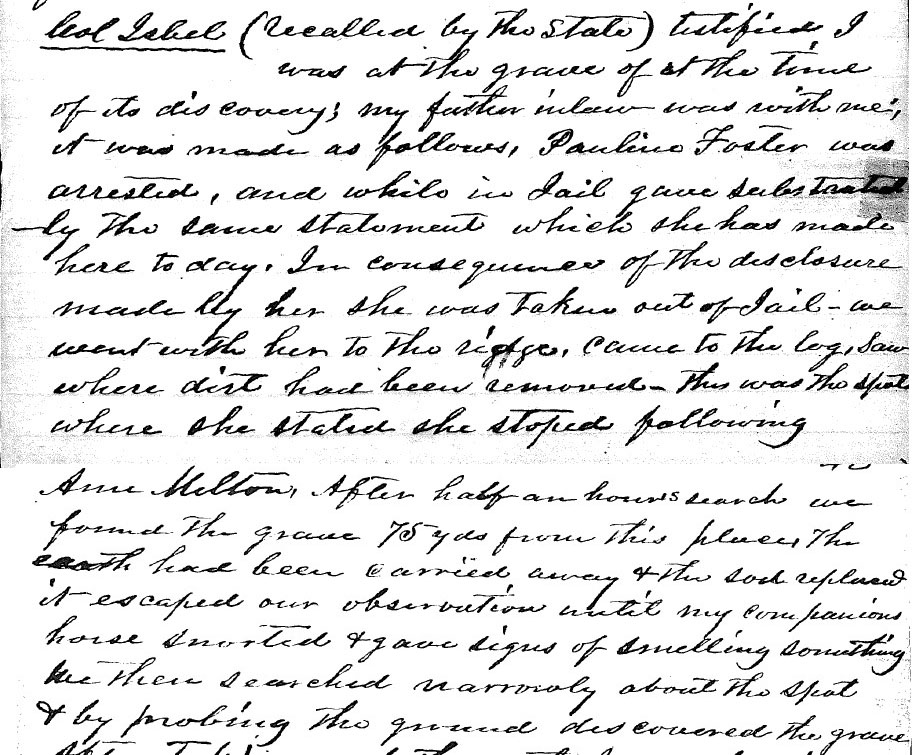 Col Isbel (recalled by the State) testified I
was at the grave of at the time
of its discovery; my father in law was with me;
it was made as follows, Pauline Foster was
arrested, and while in Jail gave substantial
-ly the same statement which she has made
here to day. In consequence of the disclosure
made by her she was taken out of Jail - we
went with her to the ridge, came to the log, saw
where dirt had been removed - this was the spot
where she stated she stoped following
Ann Melton, After half an hours search we
found the grave 75 yds from this place, The
earth had been carried away & the sod replaced
it escaped our observation until my companions
horse snorted & gave signs of smelling something
We then searched narrowly about the spot
& by probing the ground discovered the grave